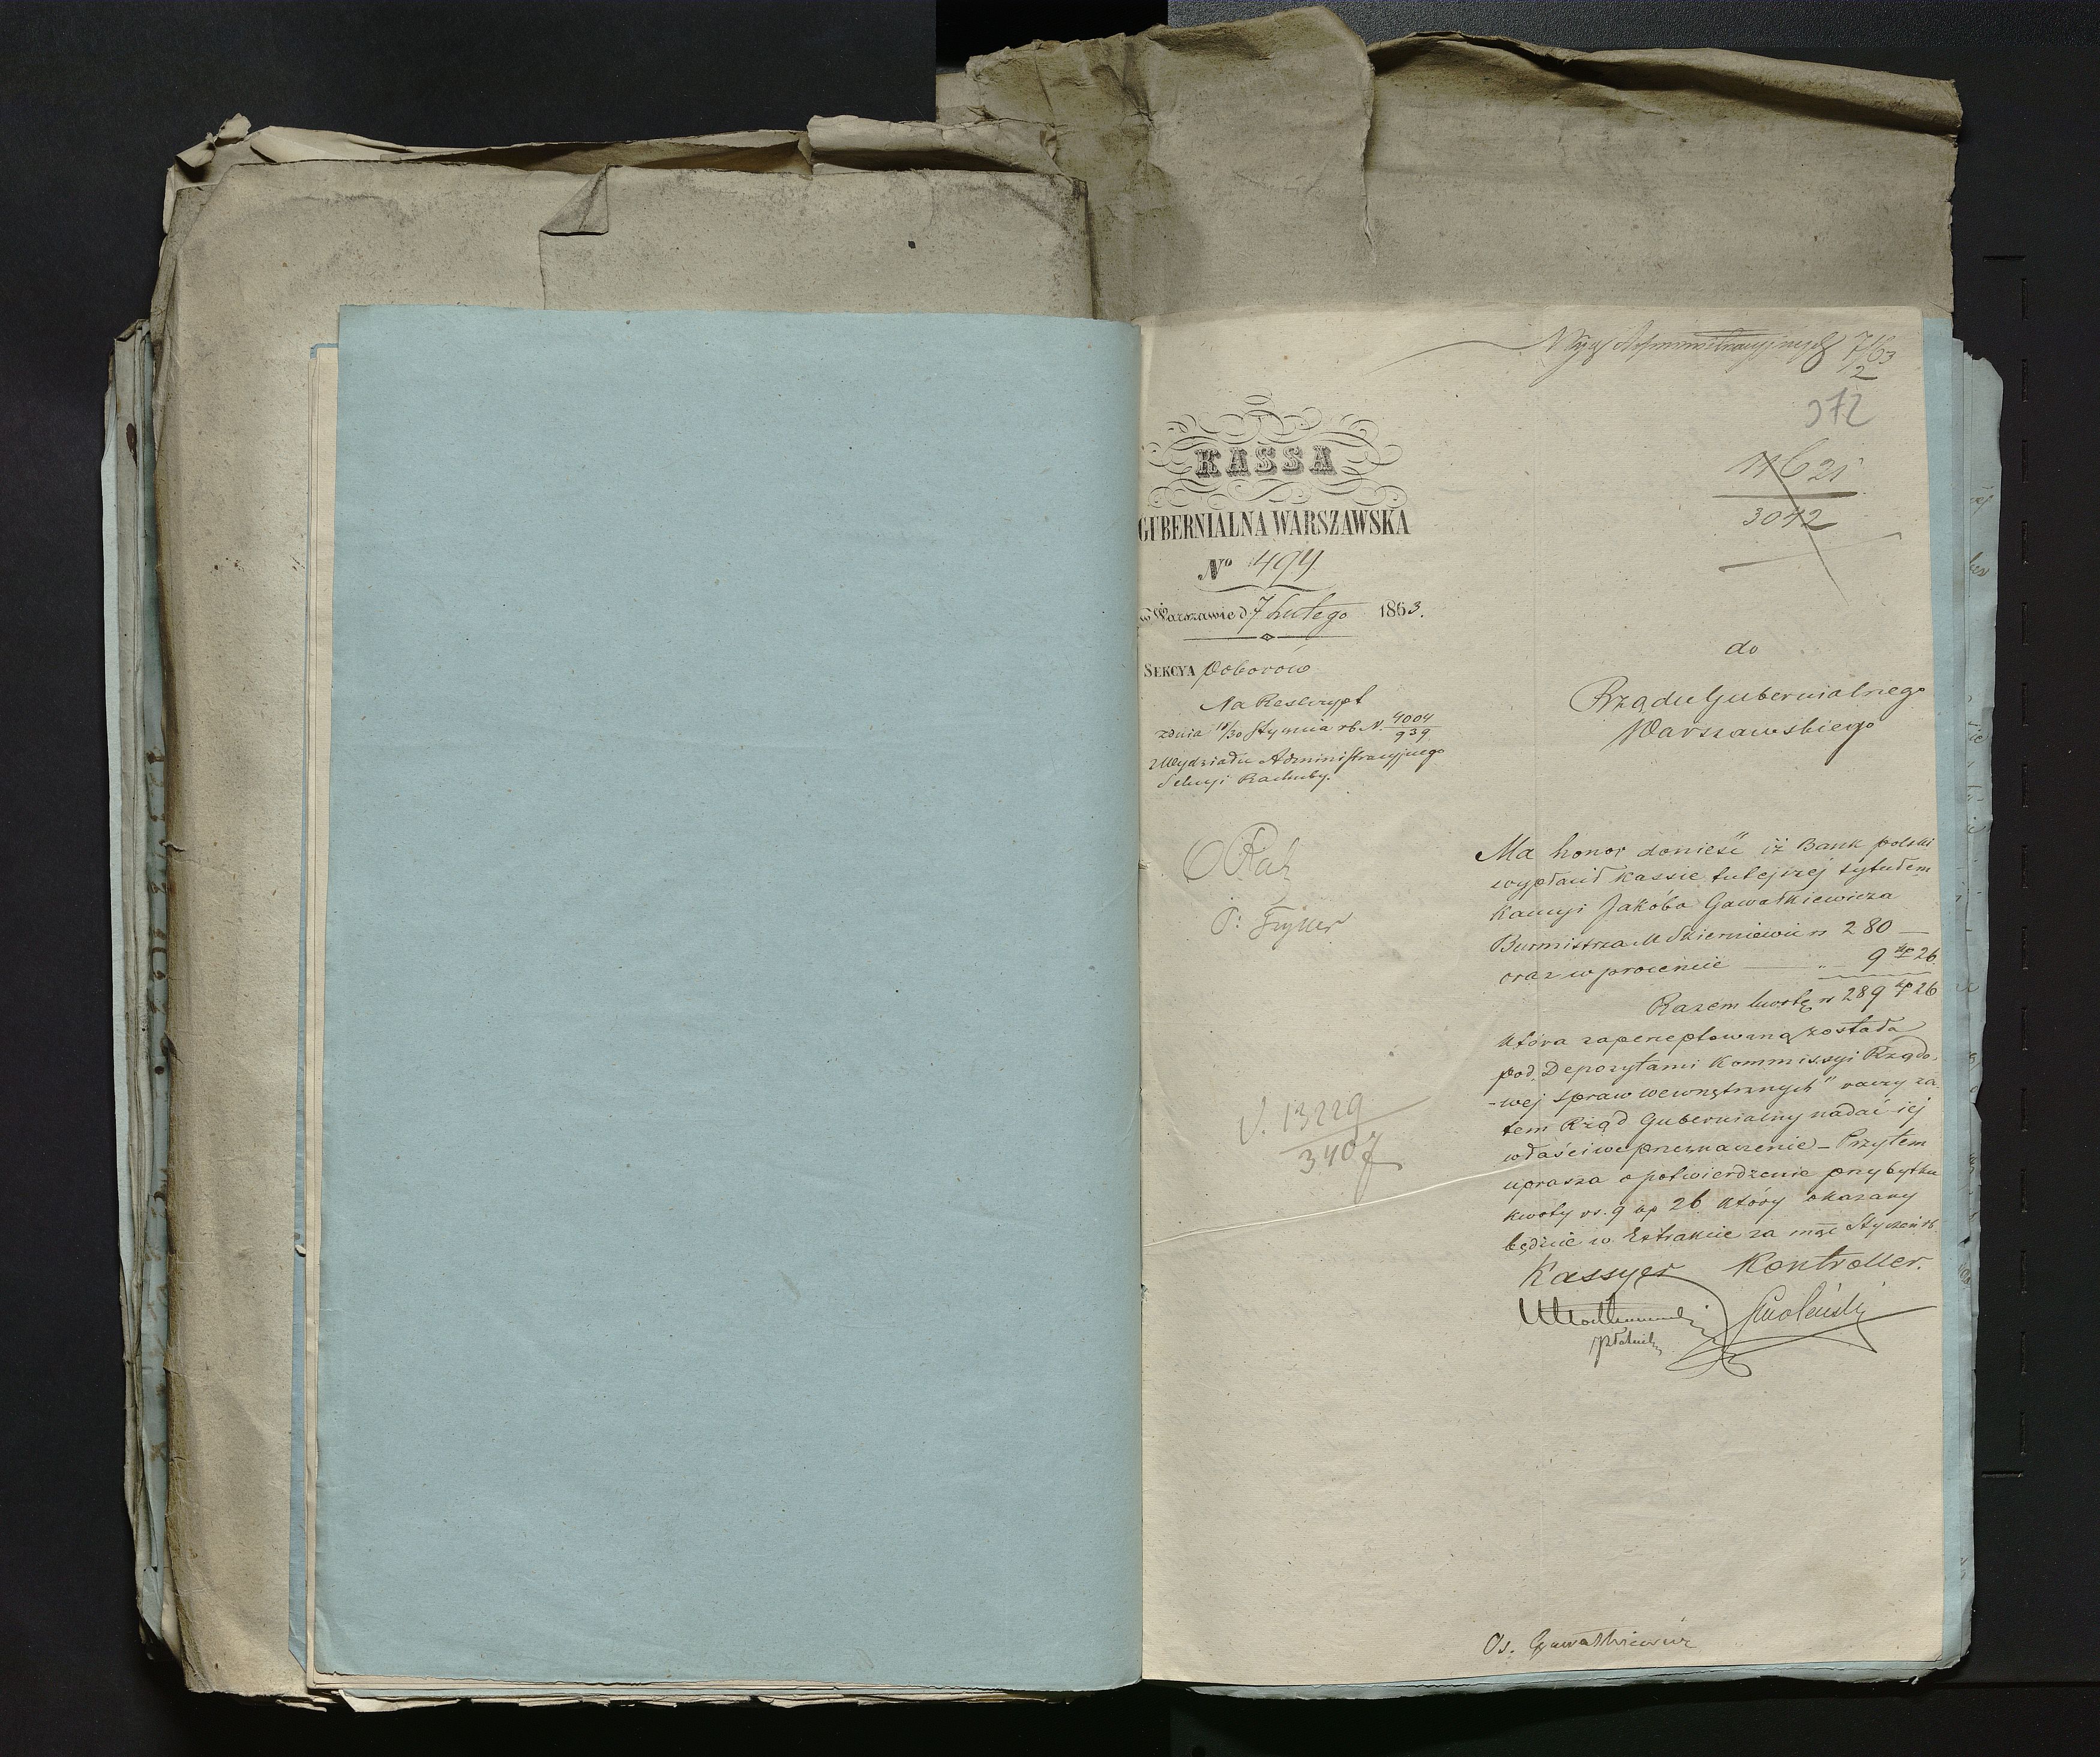 7/2 63
372
11621
3042
KASSA
GUBERNIALNA WARSZAWSKA
No 494
w Warszawie d. 7 Lutego 1863.
SEKCYA Poborów
Na Reskrypt
z dnia 18/30 Stycznia rb N. 4004/939
z Wydziału Administracyjnego
Sekcyi Rachuby.
do
Rządu Gubernialnego
Warszawskiego
Ma honor donieść iż Bank polski
wypłacił Kassie tutejszej tytułem
Kaucyi Jakóba Gawałkiewicza
Burmistrza M Skierniewic rs 280 —
oraz w procencie — " 9 kp 26
Razem kwotę rs 289 kp 26
która zaperceptowaną została
pod "Depozytami Kommissyi Rządo-
-wej spraw wewnętrznych" raczy za-
tem Rząd Gubernialny nadać jej
właściwe przeznaczenie – Przytem
uprasza o potwierdzenie przybytku
kwoty rs. 9 kp 26 który okazany
będzie w Extrakcie za mąc Styczeń rb.
Kassyer Kontroller.
Smoleński
V. 13229
3407
Os. Gawałkiewicz